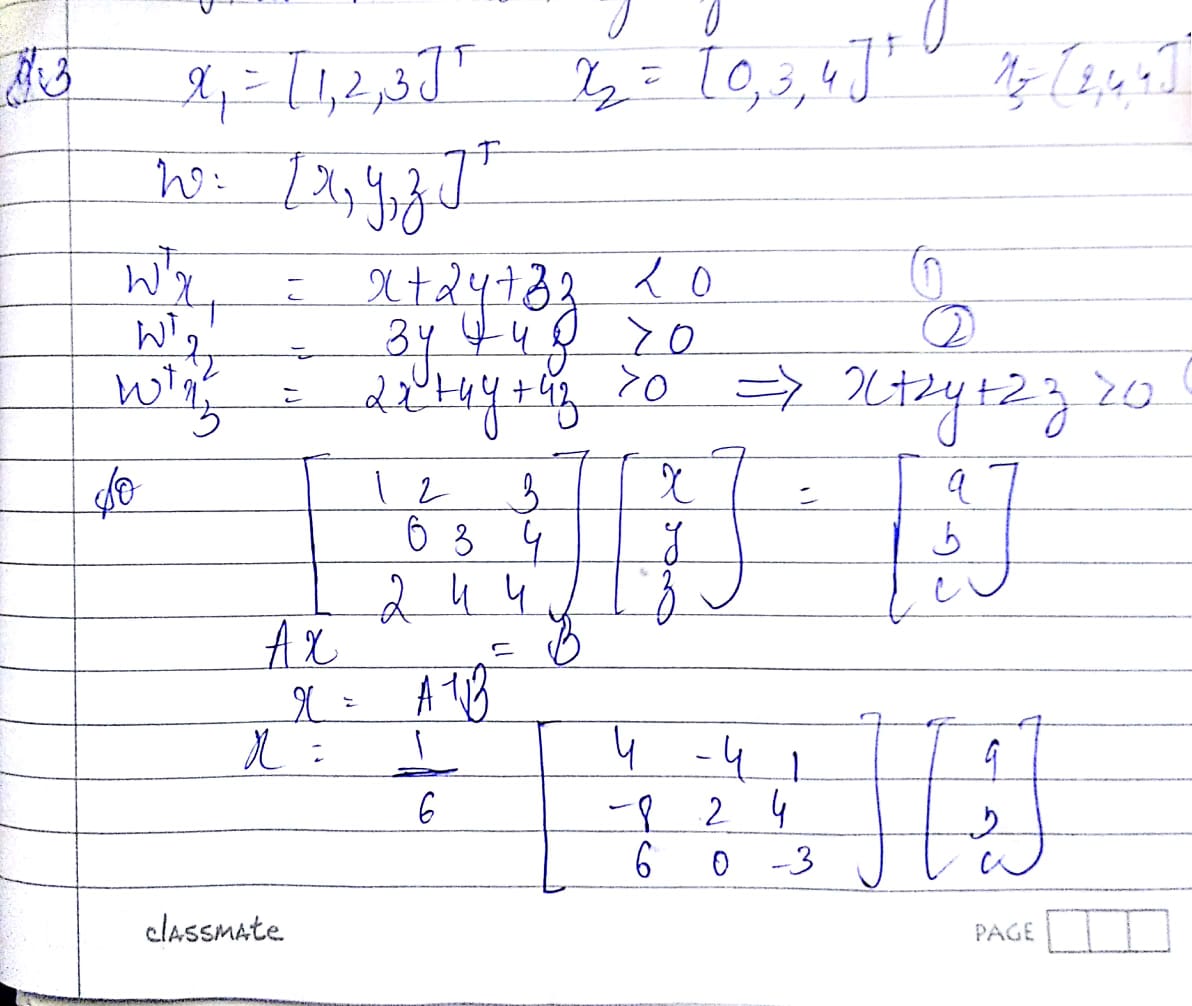 Q.3 x₁ = [1,2,3]ᵀ x₂ = [0,3,4]ᵀ x₃ = [2,4,4]
w: [x,y,z]ᵀ
Wᵀx₁ = x+2y+3z < 0 ①
Wᵀx₂ = 3y + 4z > 0 ②
Wᵀx₃ = 2x+4y+4z > 0 ⇒ x+2y+2z > 0
so [ 1 2 3 ] [ x ] = [ a ]
[ 0 3 4 ] [ y ] [ b ]
[ 2 4 4 ] [ z ] [ c ]
AX = B
x = A⁻¹B
x = 1/6 [ 4 -4 1 ] [ a ]
[ -8 2 4 ] [ b ]
[ 6 0 -3 ] [ c ]
classmate PAGE